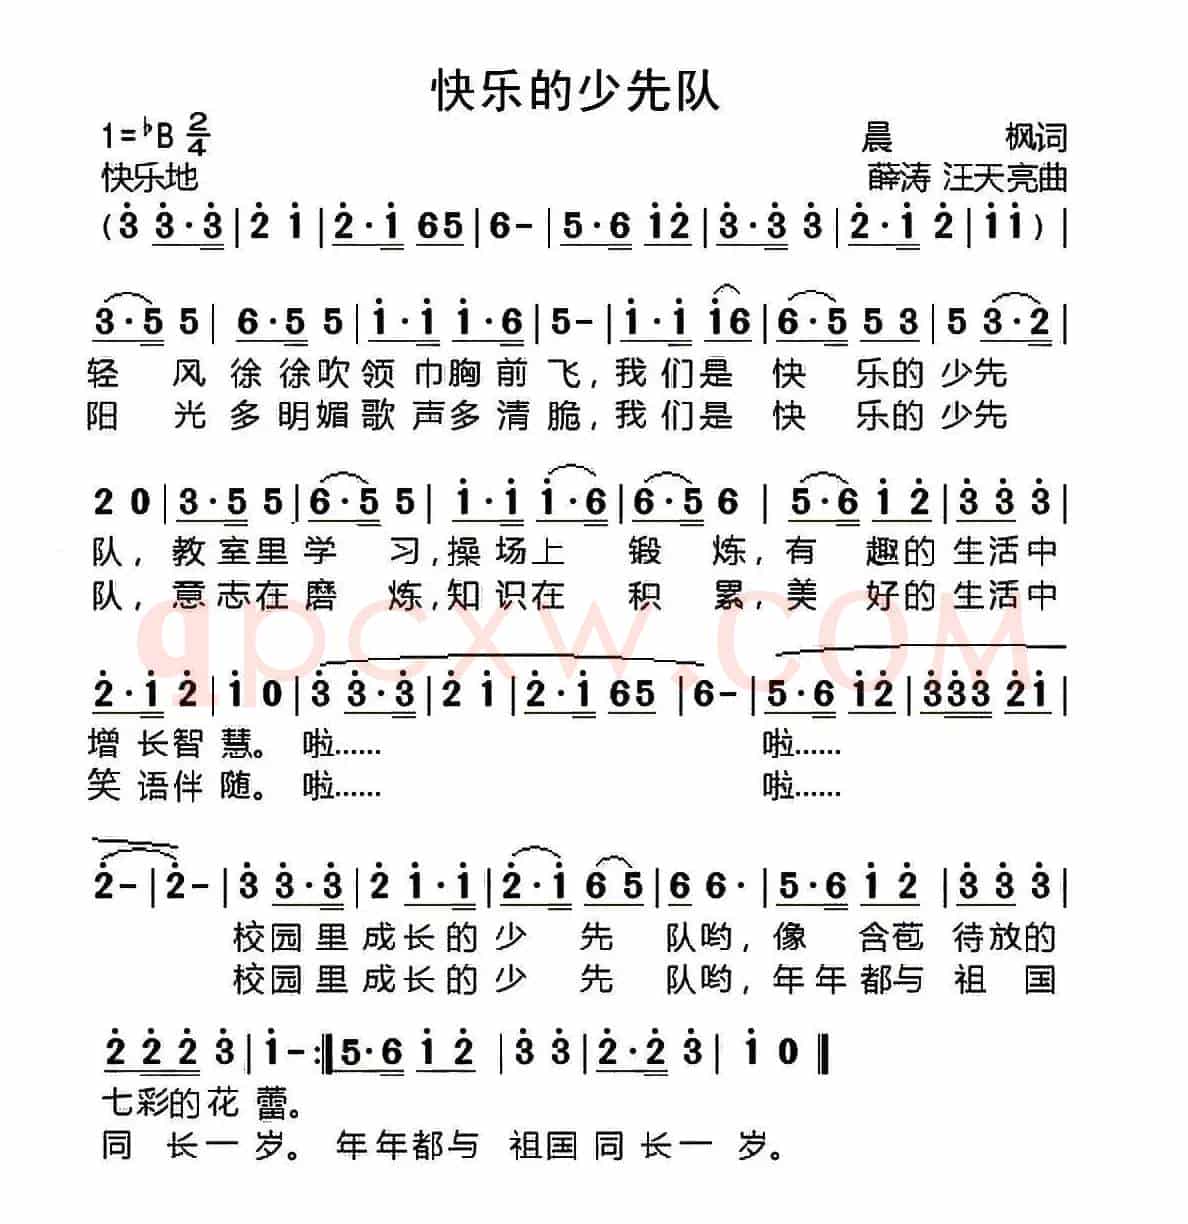 快乐的少先队
1=♭B 2/4
晨 枫词
快乐地
薛涛 汪天亮曲
(3 3·3|2 1|2·1 65|6-|5·6 12|3·3 3|2·1 2|11)|
3·5 5|6·5 5|1·1 1·6|5-|1·1 16|6·5 53|5 3·2|
轻 风 徐 徐吹 领 巾胸 前 飞,我 们是 快 乐的 少先
阳 光 多 明媚 歌 声多 清 脆,我 们是 快 乐的 少先
2 0|3·5 5|6·5 5|1·1 1·6|6·5 6|5·6 1 2|3 3 3|
队, 教 室里 学 习,操 场上 锻 炼,有 趣的 生活中
队, 意 志在 磨 炼,知 识在 积 累,美 好的 生活中
2·1 2|1 0|3 3·3|2 1|2·1 65|6-|5·6 12|333 21|
增 长智 慧。 啦…… 啦……
笑 语伴 随。 啦…… 啦……
qpcxw.COM
2-|2-|3 3·3|2 1·1|2·1 6 5|6 6·|5·6 1 2|3 3 3|
校园 里 成 长 的 少 先 队哟, 像 含苞 待放的
校园 里 成 长 的 少 先 队哟, 年 年 都与 祖 国
2 2 2 3|1-:|5·6 1 2|3 3|2·2 3|1 0|
七彩的 花 蕾。
同 长一 岁。 年年都与 祖国 同 长一 岁。